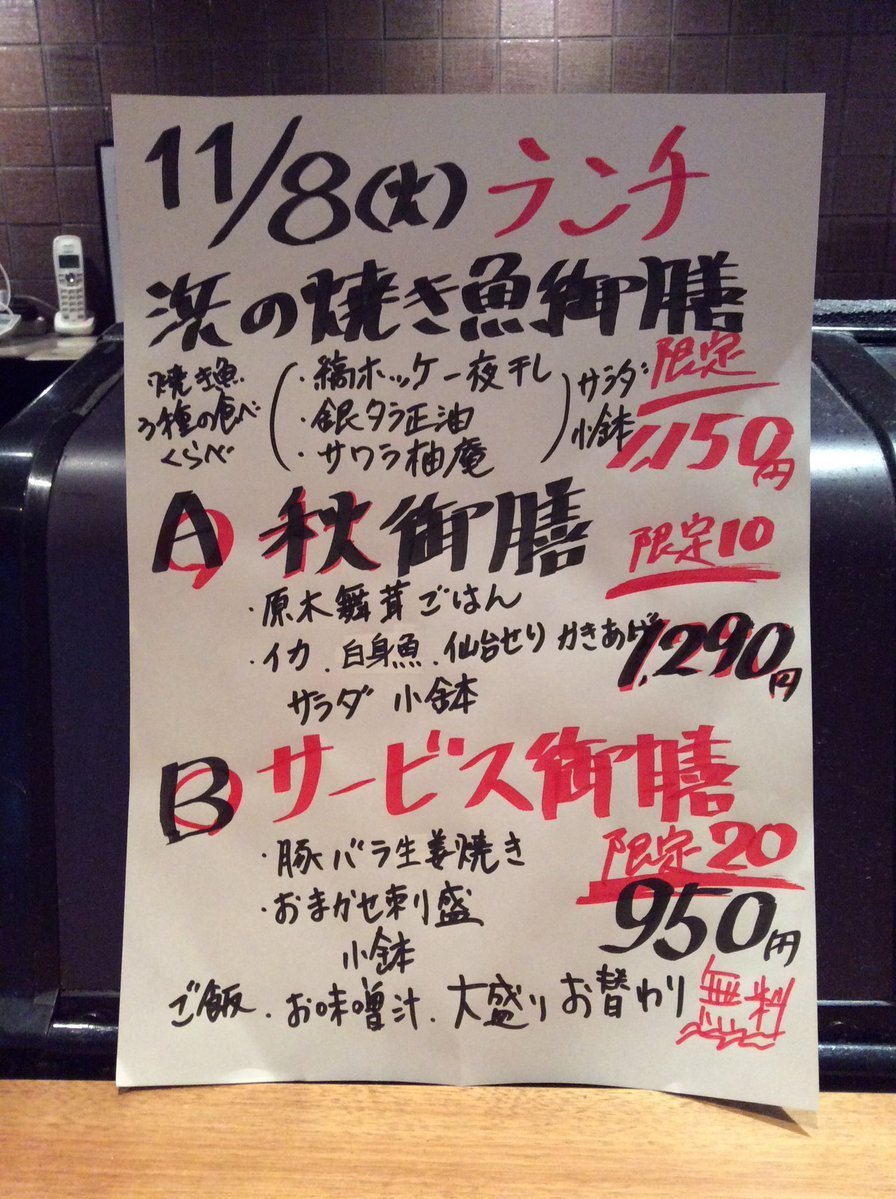 11/8(火)ランチ
浜の焼き魚御膳
焼き魚
3種の食べ
くらべ
(・縞ホッケ一夜干し
・銀タラ正油
・サワラ柚庵)
サラダ
小鉢
限定
1,150円
A 秋御膳
限定10
・原木舞茸ごはん
・イカ.白身魚.仙台せり かきあげ
1,290円
サラダ 小鉢
B サービス御膳
・豚バラ生姜焼き
限定20
・おまかせ刺り盛
950円
小鉢
ご飯.お味噌汁.大盛りお替わり無料